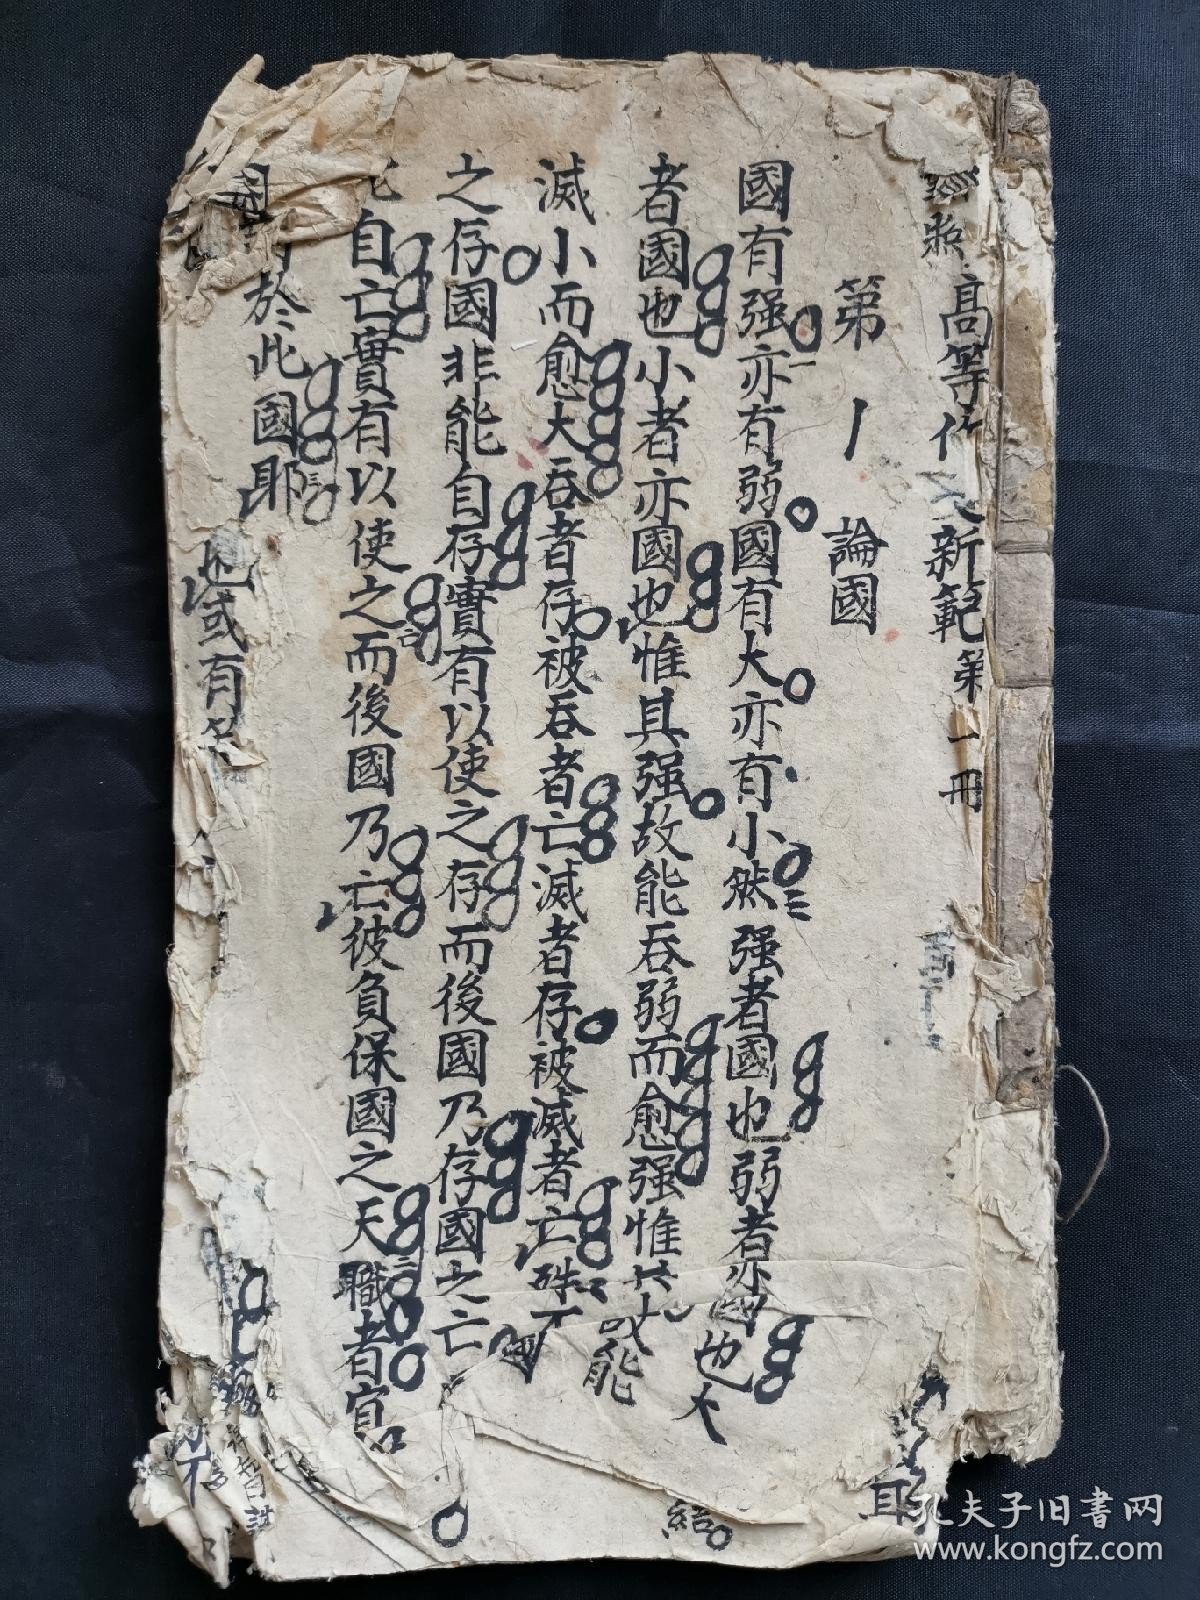 高等作文新範第一冊
第一 論國
國有强亦有弱國有大亦有小然强者國也弱者亦國也大
者國也小者亦國也惟其强故能吞弱而愈强惟其大故能
滅小而愈大吞者存被吞者亡滅者存被滅者亡殊不國
之存國非能自存實有以使之存而後國乃存國之亡
自亡實有以使之而後國乃亡彼負保國之天職者宜
於此國耶
也或有
結
耳
孔夫子旧書网
www.kongfz.com